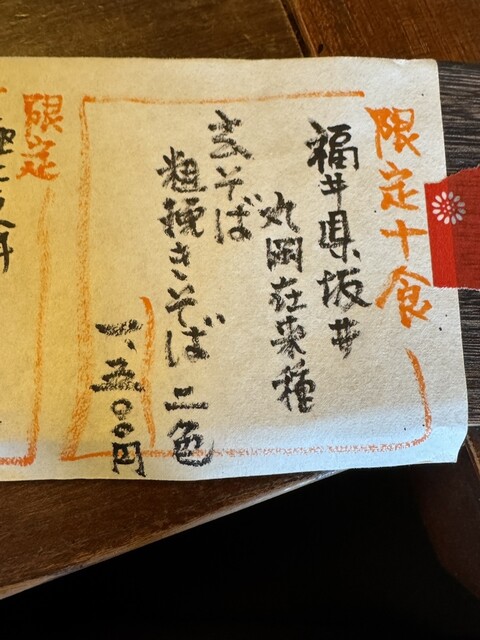 限定十食
福井県坂井
丸岡在来種
玄そば
粗挽きそば 二色
一、五〇〇円
限定